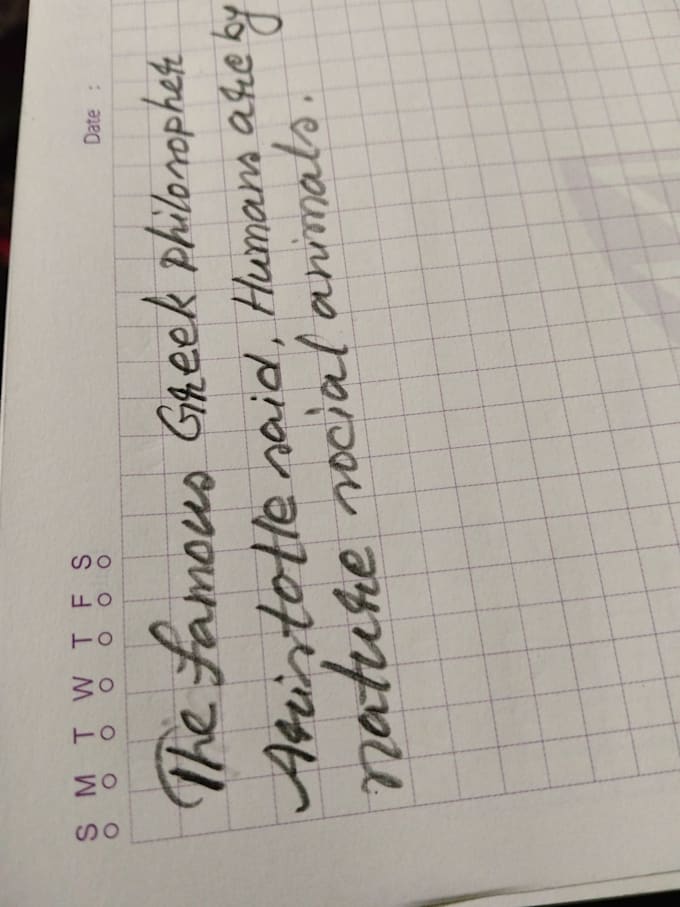 S M T W T F S
Date :
The famous Greek philosopher
Aristotle said, Humans are by
nature social animals.